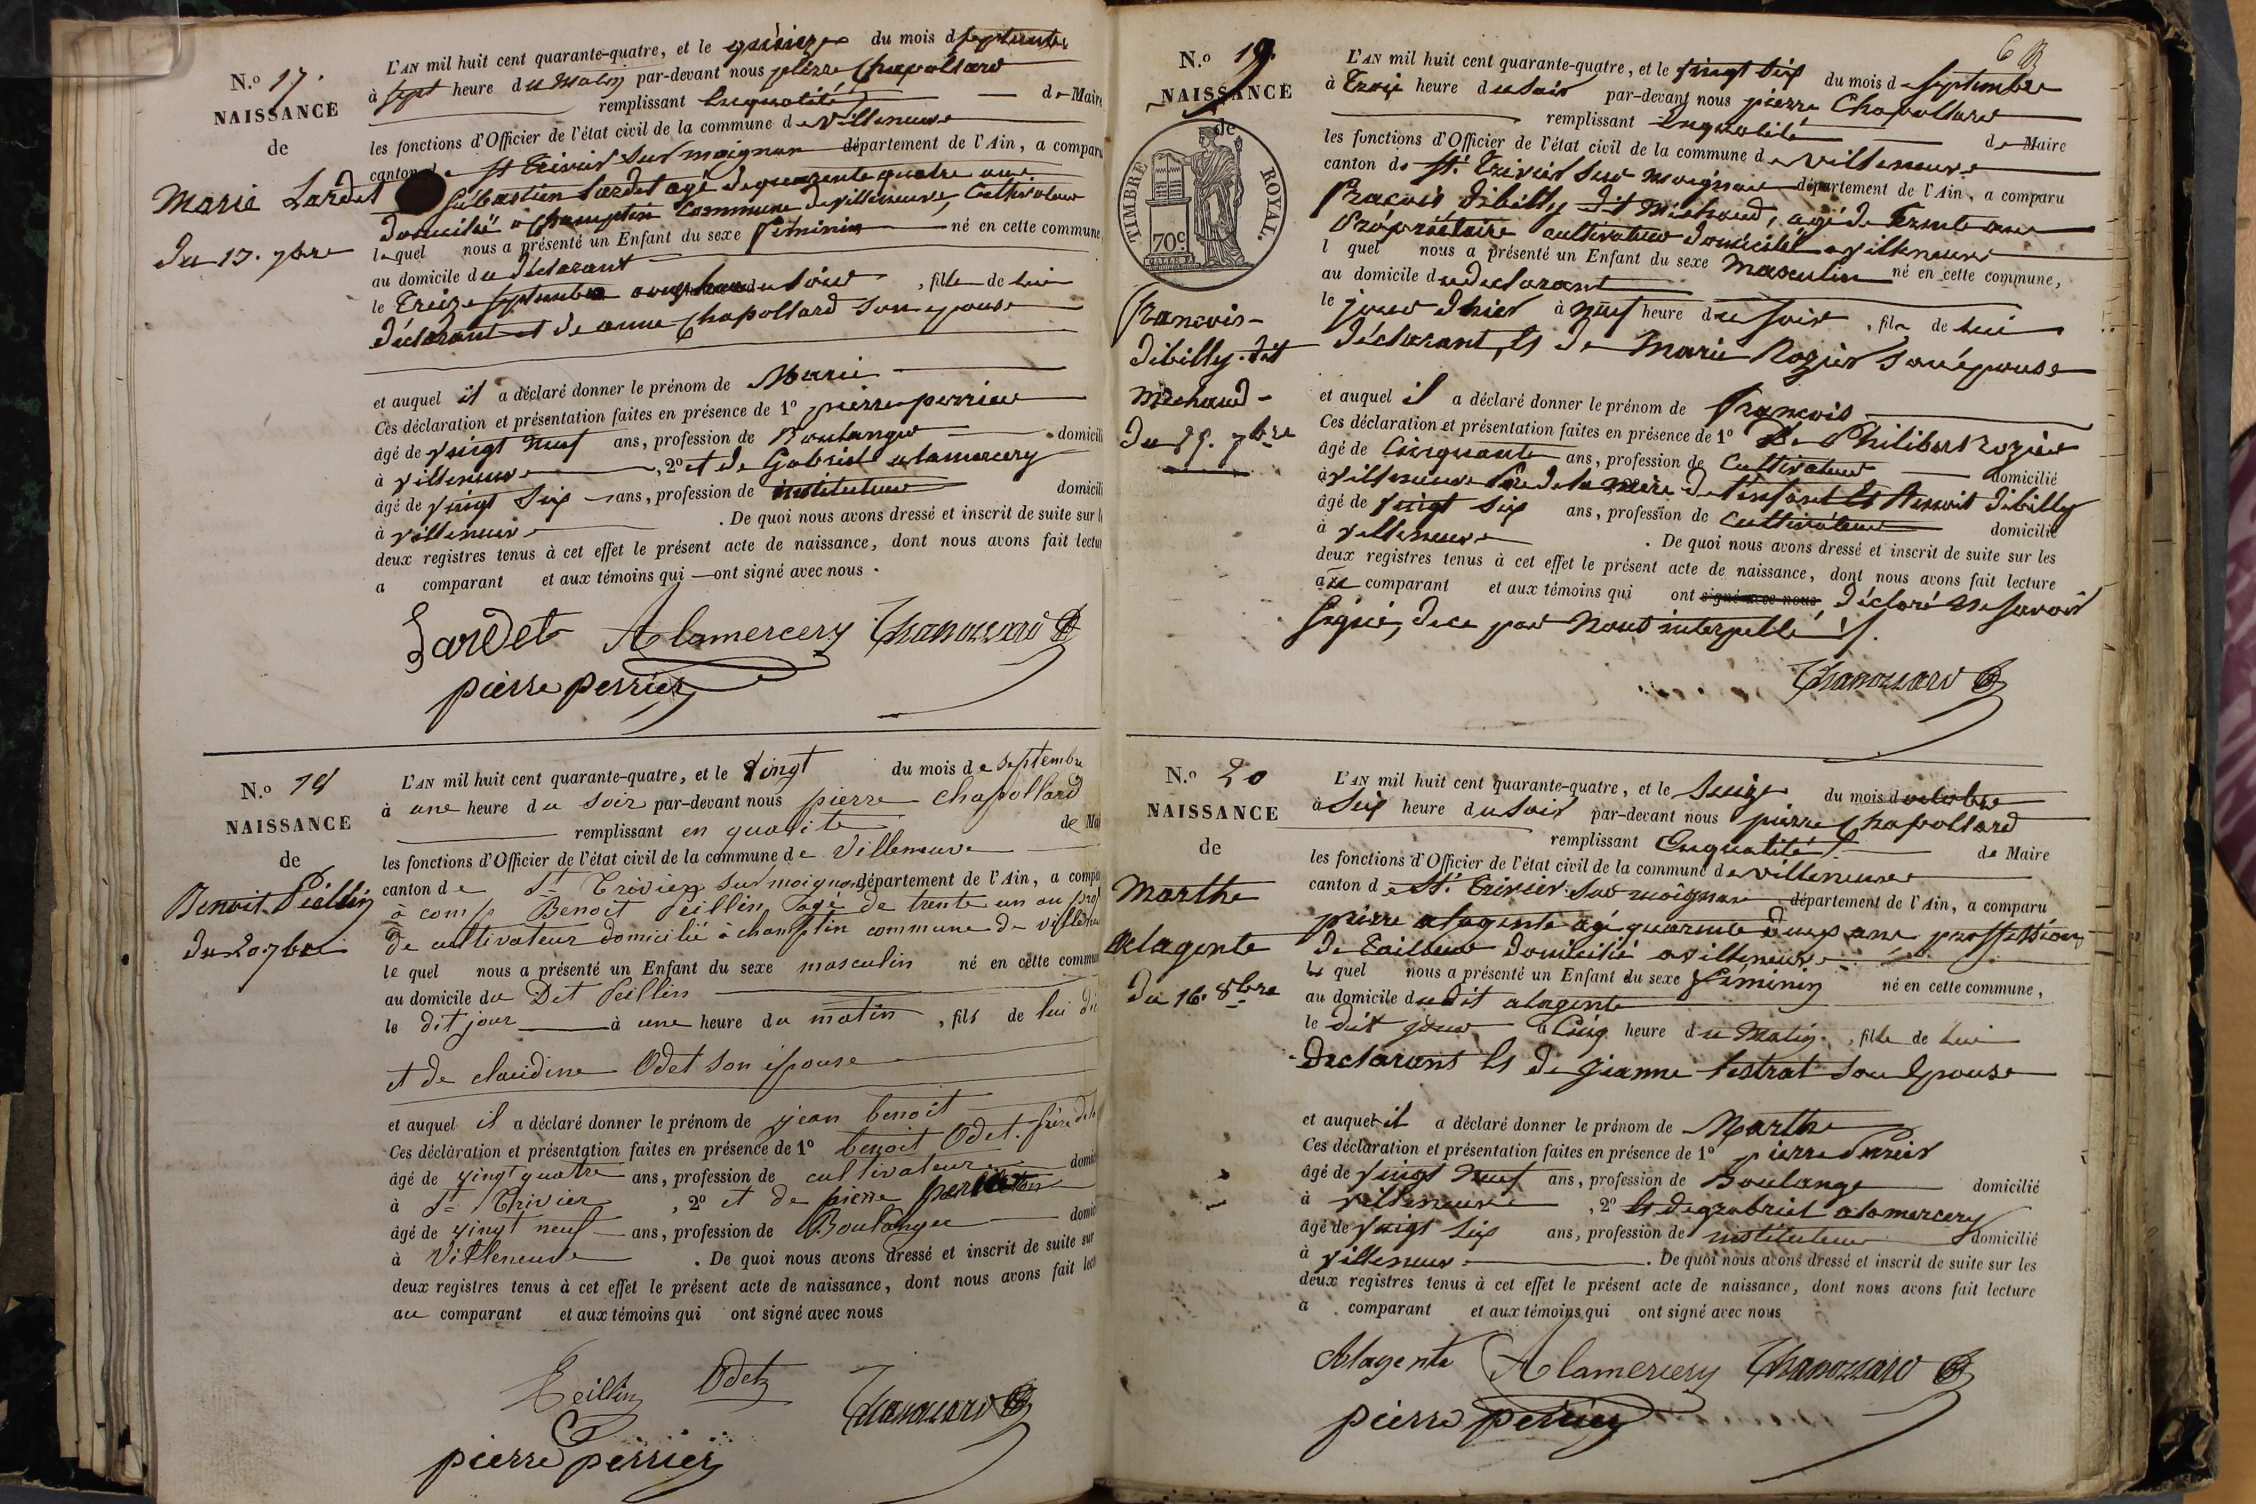 N.o 17.
NAISSANCE
de
Marie Lardet
du 13. 7bre
L'AN mil huit cent quarante-quatre, et le quinze du mois de septembre
à sept heure du matin par-devant nous pierre Chapollard
remplissant en qualité de Maire
les fonctions d'Officier de l'état civil de la commune de villeneuve
canton de St Trivier sur moignan département de l'Ain, a comparu
Sébastien Lardet agé de quarante quatre ans
domicilié à champtin commune de villeneuve, Cultivateur
lequel nous a présenté un Enfant du sexe féminin né en cette commune,
au domicile du déclarant
le Treize septembre onze heure du soir, fille de lui
déclarant et de anne Chapollard son epouse
et auquel il a déclaré donner le prénom de Marie
Ces déclaration et présentation faites en présence de 1o pierre perrier
âgé de vingt neuf ans, profession de Boulanger domicili
à villeneuve, 2o et de Gabriel alamercery
âgé de vingt six ans, profession de instituteur domicili
à villeneuve. De quoi nous avons dressé et inscrit de suite sur l
deux registres tenus à cet effet le présent acte de naissance, dont nous avons fait lectur
a comparant et aux témoins qui ont signé avec nous.
Lardet Alamercery Chapollard
pierre perrier
N.o 18
NAISSANCE
de
Benoit Peillin
du 20 7bre
L'AN mil huit cent quarante-quatre, et le vingt du mois de septembre
à une heure du soir par-devant nous pierre chapollard
remplissant en qualité de Mai
les fonctions d'Officier de l'état civil de la commune de Villeneuve
canton de St Trivier sur moignans département de l'Ain, a compa
à comp Benoit Peillin, agé de trente un an prof
de cultivateur domicilié à champtin commune de villene
le quel nous a présenté un Enfant du sexe masculin né en cette commun
au domicile du Dit Peillin
le dit jour à une heure du matin, fils de lui dé
et de claudine Odet son épouse
et auquel il a déclaré donner le prénom de jean benoit
Ces déclaration et présentation faites en présence de 1o benoit Odet. frère de la
âgé de vingt quatre ans, profession de cultivateur domici
à St Trivier, 2o et de pierre
âgé de vingt neuf ans, profession de Boulanger domici
à Villeneuve. De quoi nous avons dressé et inscrit de suite sur
deux registres tenus à cet effet le présent acte de naissance, dont nous avons fait lect
au comparant et aux témoins qui ont signé avec nous
Peillin Odet Chapollard
pierre perrier
6
N.o 19.
NAISSANCE
de
TIMBRE ROYAL.
70c
francois
dibilly. dit
Michaud
du 25. 7bre
L'AN mil huit cent quarante-quatre, et le vingt six du mois de septembre
à Trois heure du soir par-devant nous pierre Chapollard
remplissant en qualité de Maire
les fonctions d'Officier de l'état civil de la commune de villeneuve
canton de St. Trivier sur moignan département de l'Ain, a comparu
francois dibilly dit Michaud, agé de Trente ans
Propriétaire cultivateur domicilié a villeneuve
l quel nous a présenté un Enfant du sexe masculin né en cette commune,
au domicile du declarant
le jour d'hier à neuf heure du soir, fils de lui
déclarant, et de Marie Rozier son épouse
et auquel il a déclaré donner le prénom de francois
Ces déclaration et présentation faites en présence de 1o De Philibert Rozier
âgé de Cinquante ans, profession de Cultivateur domicilié
à villeneuve Père de la mère de l'enfant et Benoit dibilly
âgé de vingt six ans, profession de Cultivateur domicilié
à villeneuve. De quoi nous avons dressé et inscrit de suite sur les
deux registres tenus à cet effet le présent acte de naissance, dont nous avons fait lecture
au comparant et aux témoins qui ont signé avec nous, déclaré ne savoir
signer, de ce par Nous interpellé
Chapollard
N.o 20
NAISSANCE
de
Marthe
alagente
du 16. 8bre
L'AN mil huit cent quarante-quatre, et le Seize du mois d octobre
à Six heure du soir par-devant nous pierre Chapollard
remplissant en qualité de Maire
les fonctions d'Officier de l'état civil de la commune de villeneuve
canton de St. Trivier sur moignan département de l'Ain, a comparu
pierre alagente agé quarante deux ans proffession
de Tailleur domicilié a villeneuve
le quel nous a présenté un Enfant du sexe féminin né en cette commune,
au domicile du dit alagente
le dit jour à Cinq heure du Matin, fille de lui
declarant et de jeanne testrat son épouse
et auquel il a déclaré donner le prénom de Marthe
Ces déclaration et présentation faites en présence de 1o pierre perrier
âgé de vingt neuf ans, profession de Boulange domicilié
à villeneuve, 2o et de gabriel alamercery
âgé de vingt six ans, profession de instituteur domicilié
à villeneuve. De quoi nous avons dressé et inscrit de suite sur les
deux registres tenus à cet effet le présent acte de naissance, dont nous avons fait lecture
à comparant et aux témoins qui ont signé avec nous
Alagente Alamercery Chapollard
pierre perrier